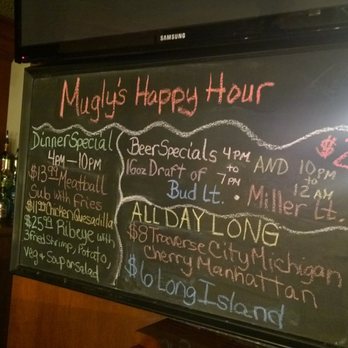 SAMSUNG
Mugly's Happy Hour
Dinner Special
4PM-10PM
$13.99 Meatball
Sub with fries
$11.99 Chicken Quesadilla
$25.99 Ribeye with
3 fried Shrimp, Potato,
Veg & Soup or Salad
Beer Specials 4PM to 7PM AND 10PM to 12AM
16oz Draft of
Bud Lt. • Miller Lt.
$2
ALL DAY LONG
$8 Traverse City Michigan
Cherry Manhattan
$6 Long Island